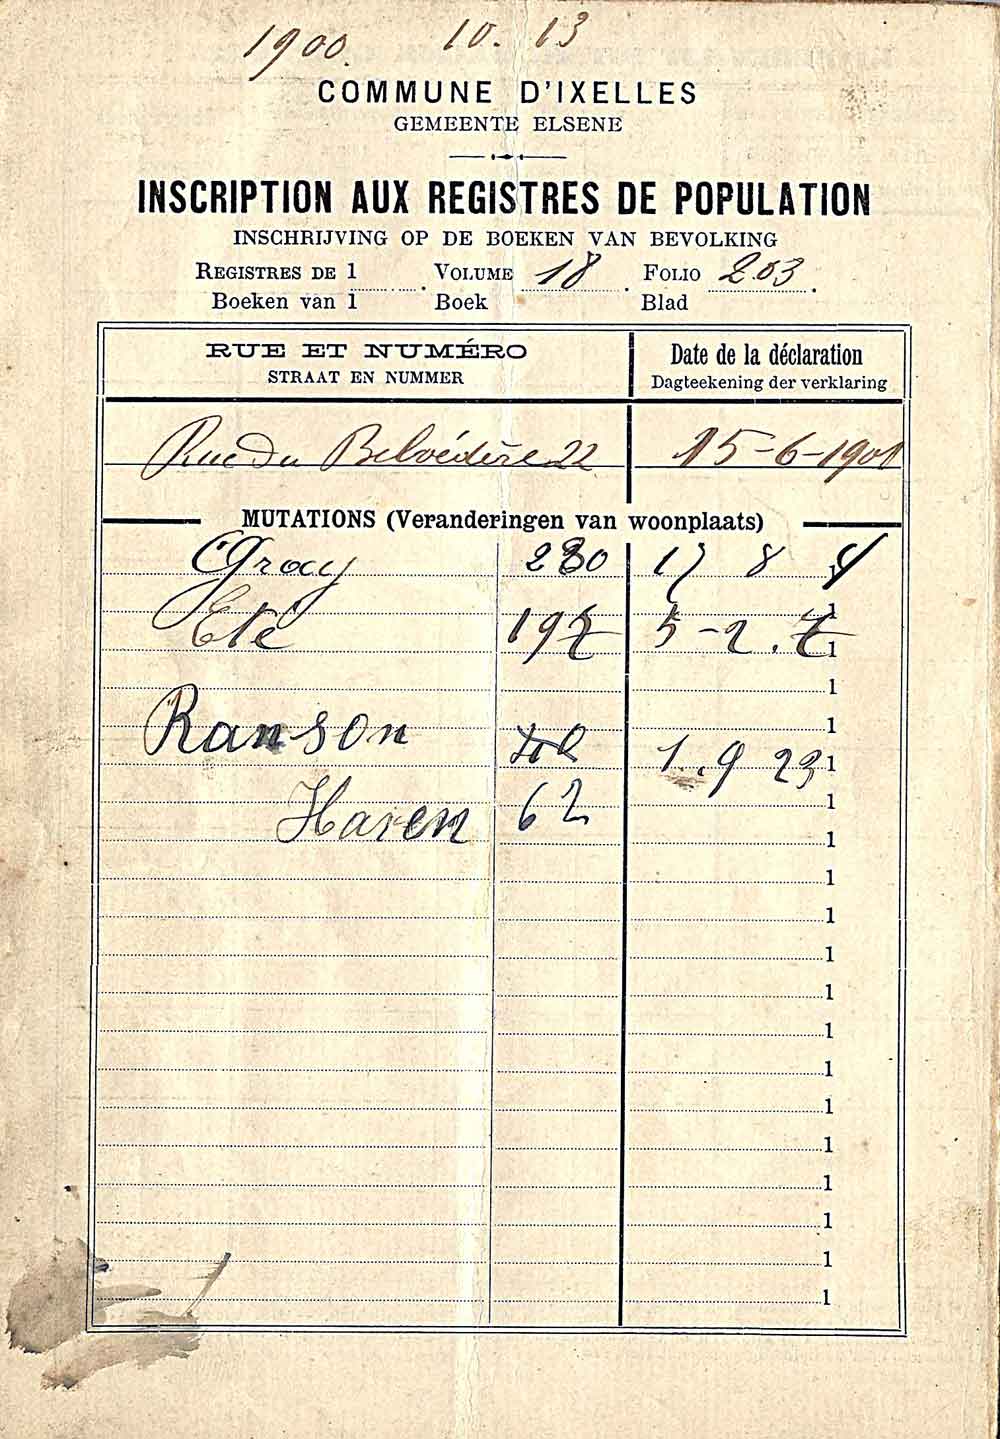 1900. 10. 13
COMMUNE D'IXELLES
GEMEENTE ELSENE
INSCRIPTION AUX REGISTRES DE POPULATION
INSCHRIJVING OP DE BOEKEN VAN BEVOLKING
REGISTRES DE 1 . VOLUME 18 . FOLIO 203 .
Boeken van 1 Boek Blad
RUE ET NUMÉRO Date de la déclaration
STRAAT EN NUMMER Dagteekening der verklaring
Rue du Belvédère 22 15-6-1901
MUTATIONS (Veranderingen van woonplaats)
Gray 230 17 8
1
Eté 197 5-2.7
1
1
1
Ranson 40 1.9 23
1
1
Haren 62
1
1
1
1
1
1
1
1
1
1
1
1
1